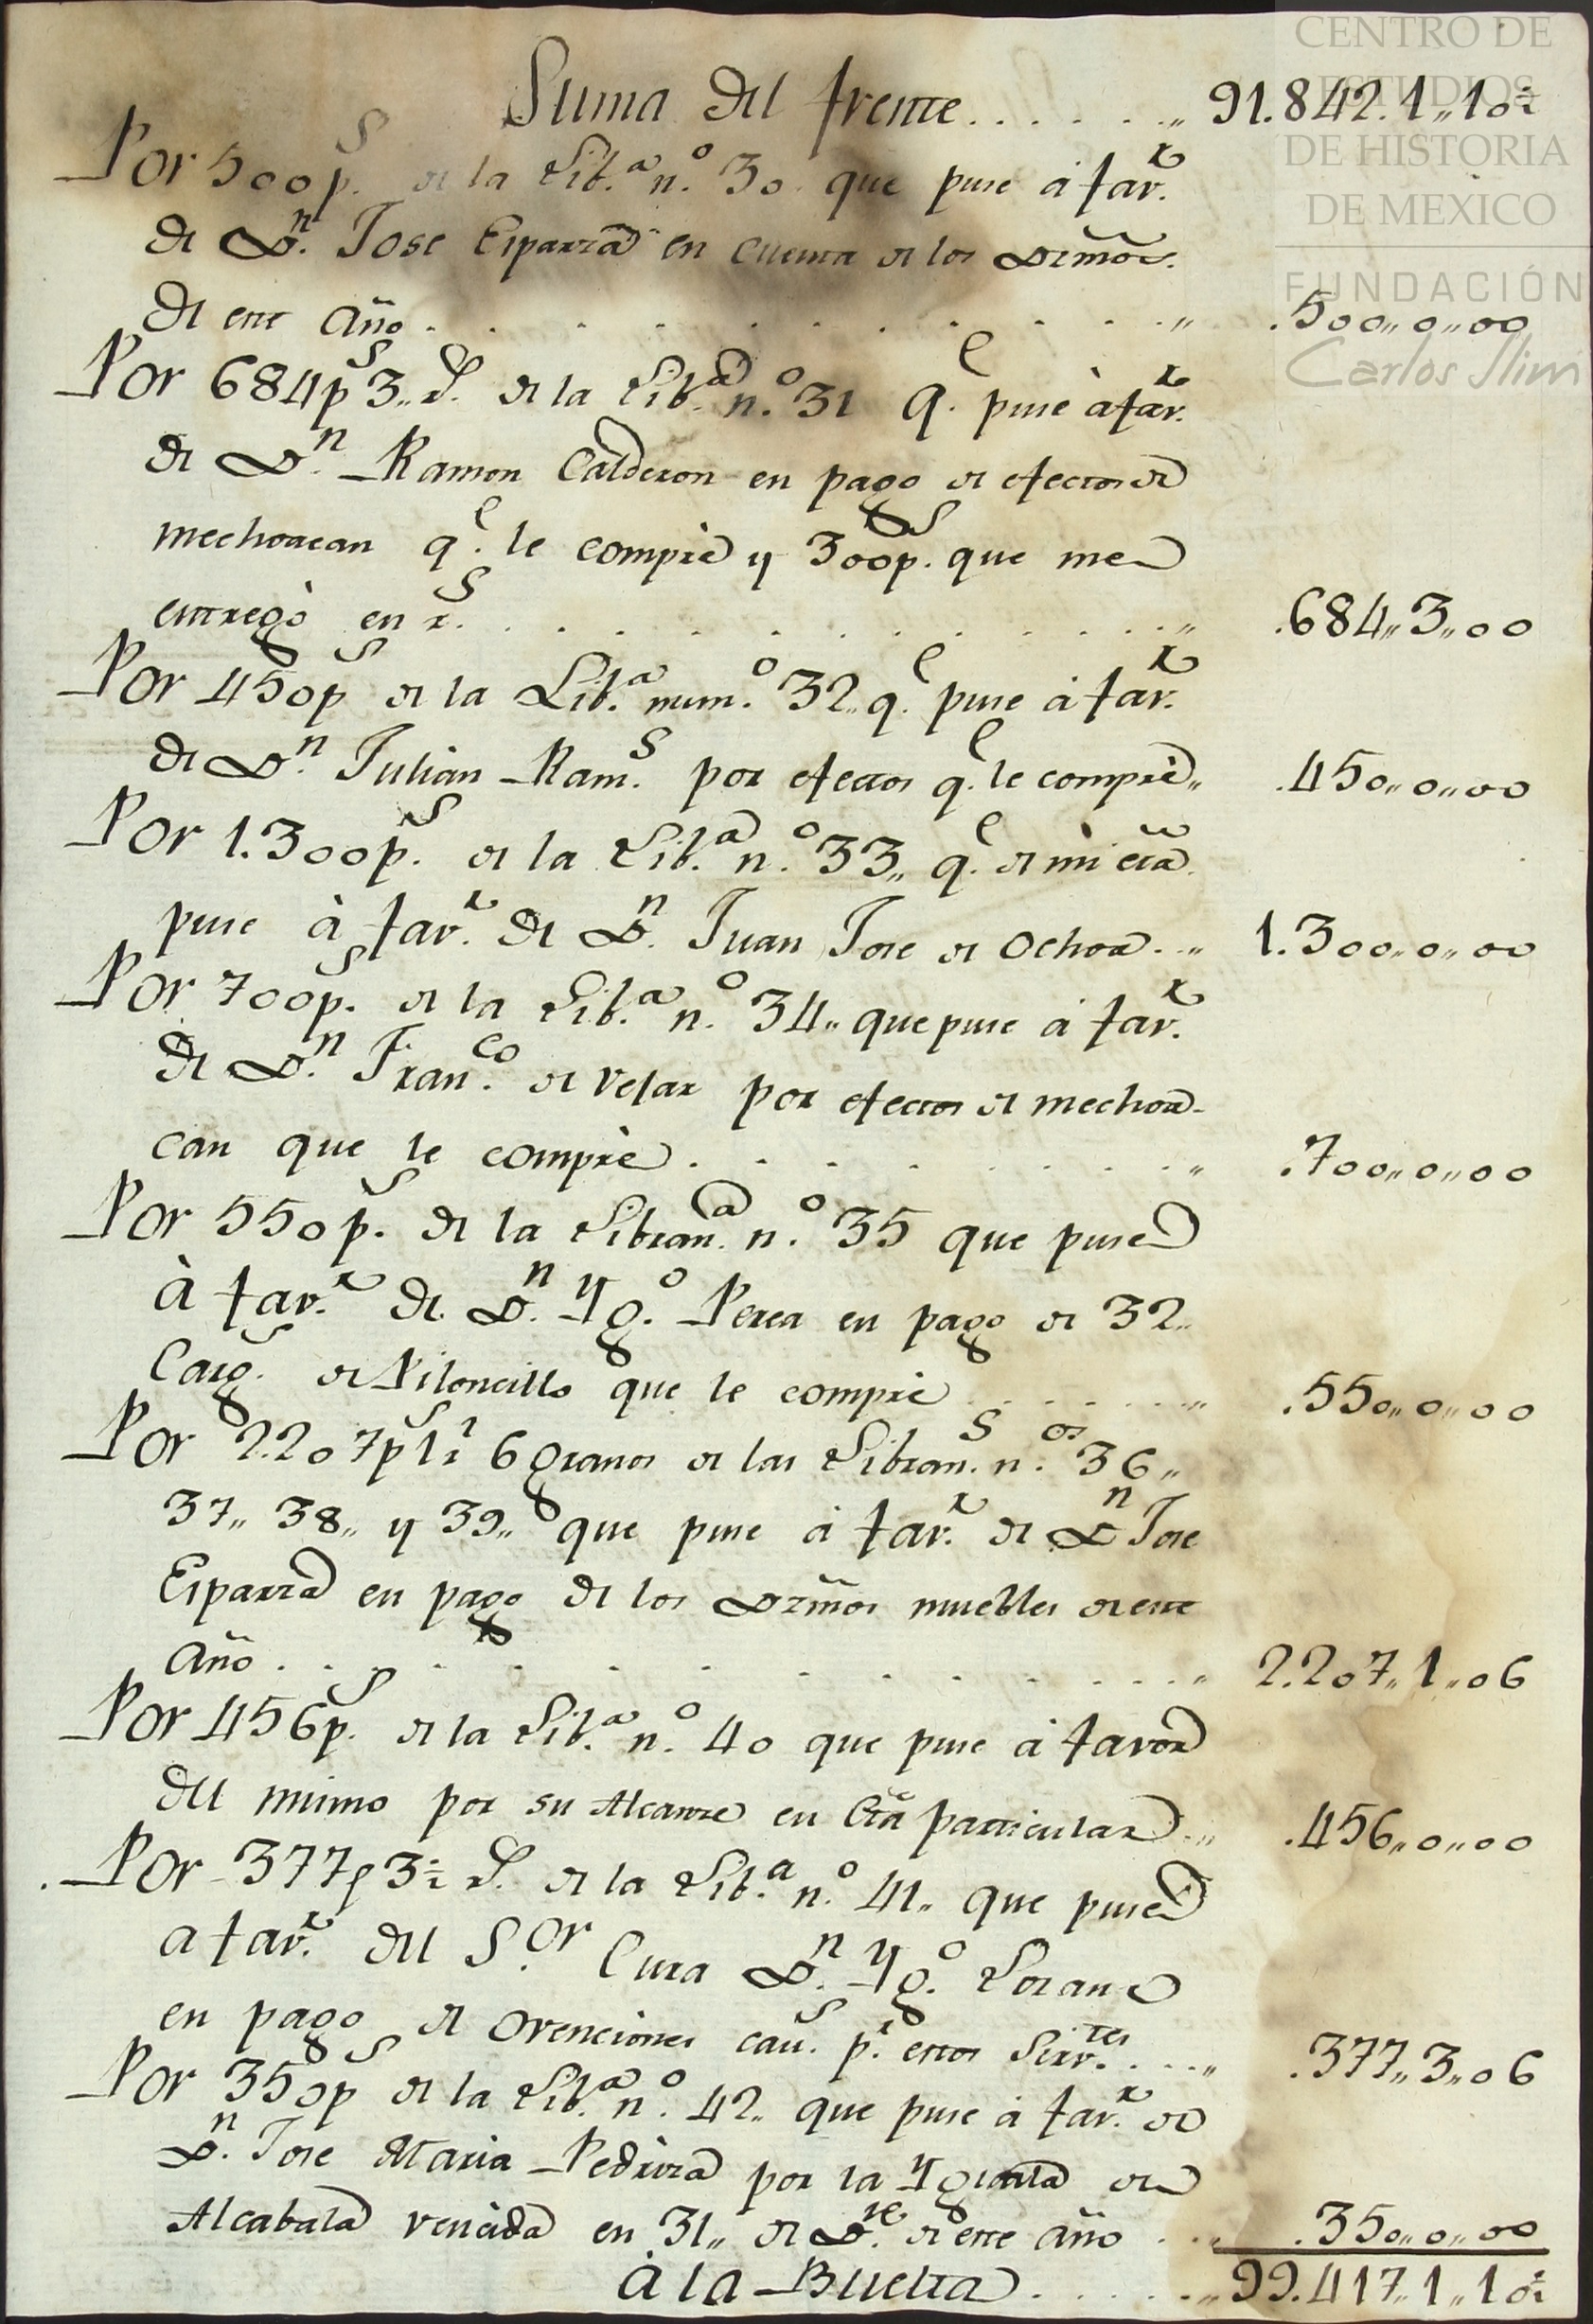 Suma del frente . . . . . . „ 91.842.1„10½
Por 500p.s de la Lib.a n.o 30. que puse á fav.r
de D.n Jose Esparza en cuenta de los Dezmos.
de este año . . . . . . . . . . . „ .500„0„00
Por 684p.s 3„ r.s de la Lib.a n.o 31 q.e puse à fav.r
de D.n Ramon Calderon en pago de efectos de
mechoacan q.e le comprè y 300p.s que me
entregò en r.s . . . . . . . . . . „ .684„3„00
Por 450p.s de la Lib.a num.o 32„ q.e puse á fav.r
de D.n Juliàn Ram.s por efectos q.e le comprè„ .450„0„00
Por 1.300p.s de la Lib.a n.o 33„ q.e de mi cta.
puse à fav.r de D.n Juan Jose de Ochoa . . „ 1.300„0„00
Por 700p.s de la Lib.a n.o 34„ que puse á fav.r
de D.n Fran.co de Vefar por efectos de mechoa-
can que le comprè . . . . . . . . „ .700„0„00
Por 550p.s de la Libran.a n.o 35 que puse
à fav.r de D.n Yg.o Perea en pago de 32„
Carg.s de Piloncillo que le comprè . . . . . . „ .550„0„00
Por 2.207p.s 1 r.l 6 granos de las Libran.s n.os 36„
37„ 38„ y 39„ que puse á fav.r de D.n Jose
Esparza en pago de los Dezmos muebles de este
año . . . . . . . . . . . . . „ 2.207„1„06
Por 456p.s de la Lib.a n.o 40 que puse á favor
del mismo por su Alcanze en Cta particular . „ .456„0„00
Por 377p 3½ r.s de la Lib.a n.o 41„ que puse
a fav.r del S.or Cura D.n Yg.o Loran
en pago de ovenciones cau.s p.r estos Sirv.tes . . . „ .377„3„06
Por 350p.s de la Lib.a n.o 42„ que puse á fav.r de
D.n Jose Maria Pedroza por la Yguala de
Alcabala vencida en 31„ de D.re de este año . . „ .350„0„00
à la Buelta . . . . . „ 99.417„1„10½
CENTRO DE
ESTUDIOS
DE HISTORIA
DE MEXICO
FUNDACIÓN
Carlos Slim